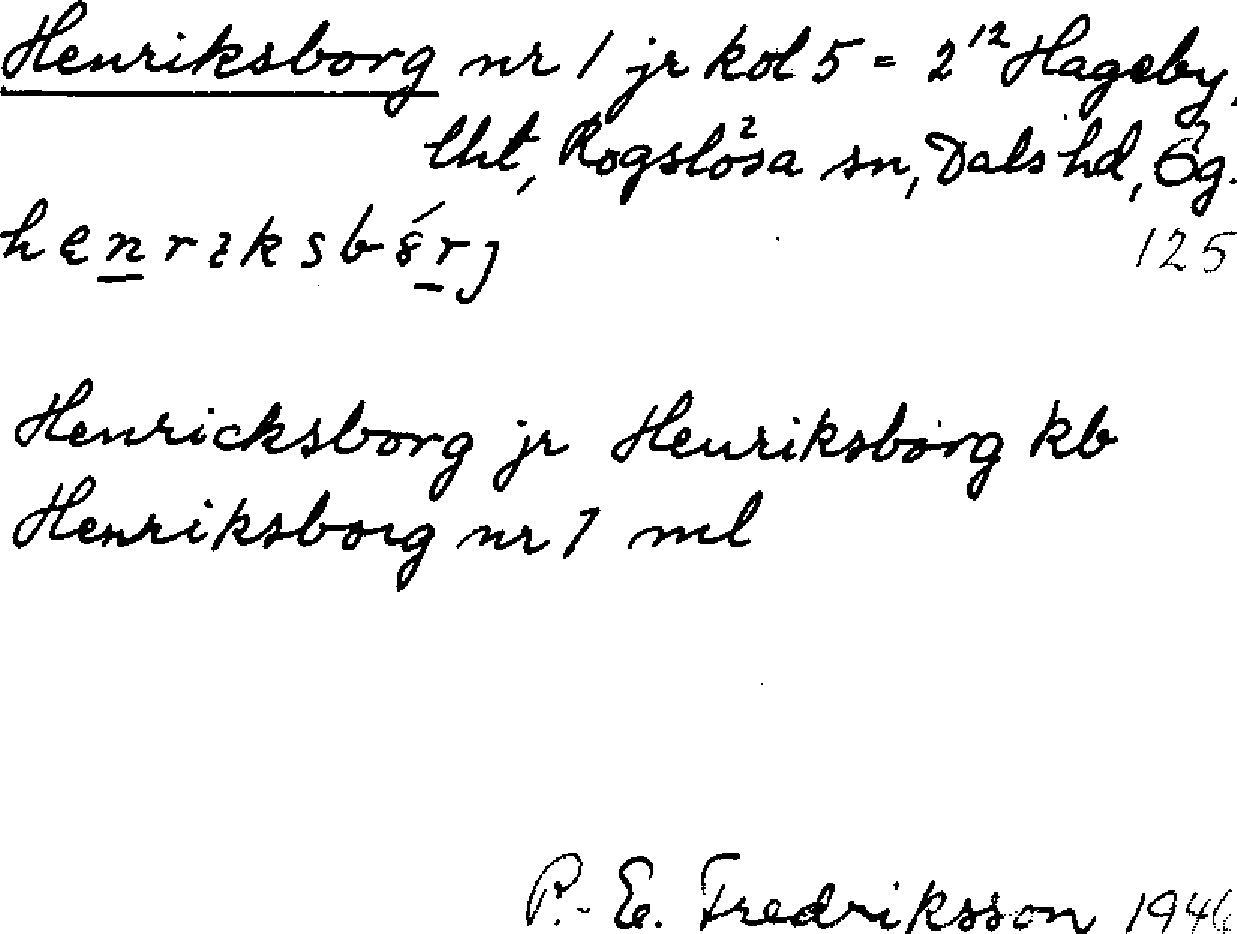 Henriksborg nr 1 jr kol 5 = 2¹² Hageby,
lht, Rogslösa sn, Dals hd, Ög.
125
Henricksborg jr Henriksborg kb
Henriksborg nr 1 ml
P.-E. Fredriksson 1946